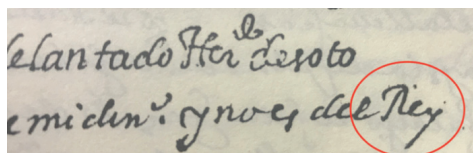 elantado Her^do desoto
e midin^o. y no es del Rey